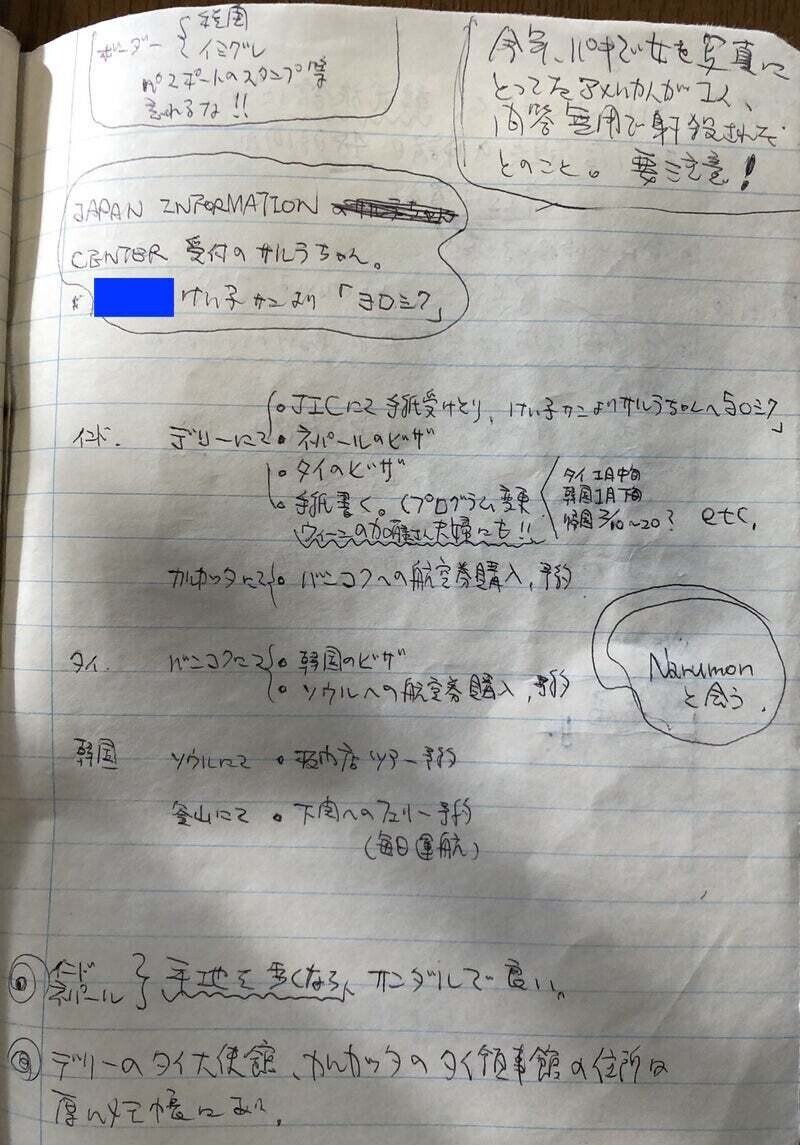 ボーダー { 税関
イミグレ
パスポートのスタンプ等
忘れるな!!
今年、パキで女を写真に
とってたアメリカ人が1人、
問答無用で射殺された
とのこと。要注意!
JAPAN INFORMATION
CENTER 受付のサルラちゃん。
けい子さんより「ヨロシク」
インド. デリーにて
・JICにて手紙受けとり、けい子さんよりサルラちゃんへ「ヨロシク」
・ネパールのビザ
・タイのビザ
・手紙書く。(プログラム変更
タイ 1月中旬
韓国 1月下旬
帰国 2/10〜20? etc,
ウィーンの加藤さん夫婦にも!!
カルカッタにて ・バンコクへの航空券購入,予約
タイ. バンコクにて ・韓国のビザ
・ソウルへの航空券購入,予約
Narumon
と会う.
韓国 ソウルにて ・板門店ツアー予約
釜山にて ・下関へのフェリー予約
(毎日運航)
インド
ネパール } サンダルで良い。
デリーのタイ大使館、カルカッタのタイ領事館の住所は
厚いメモ帳にあり.